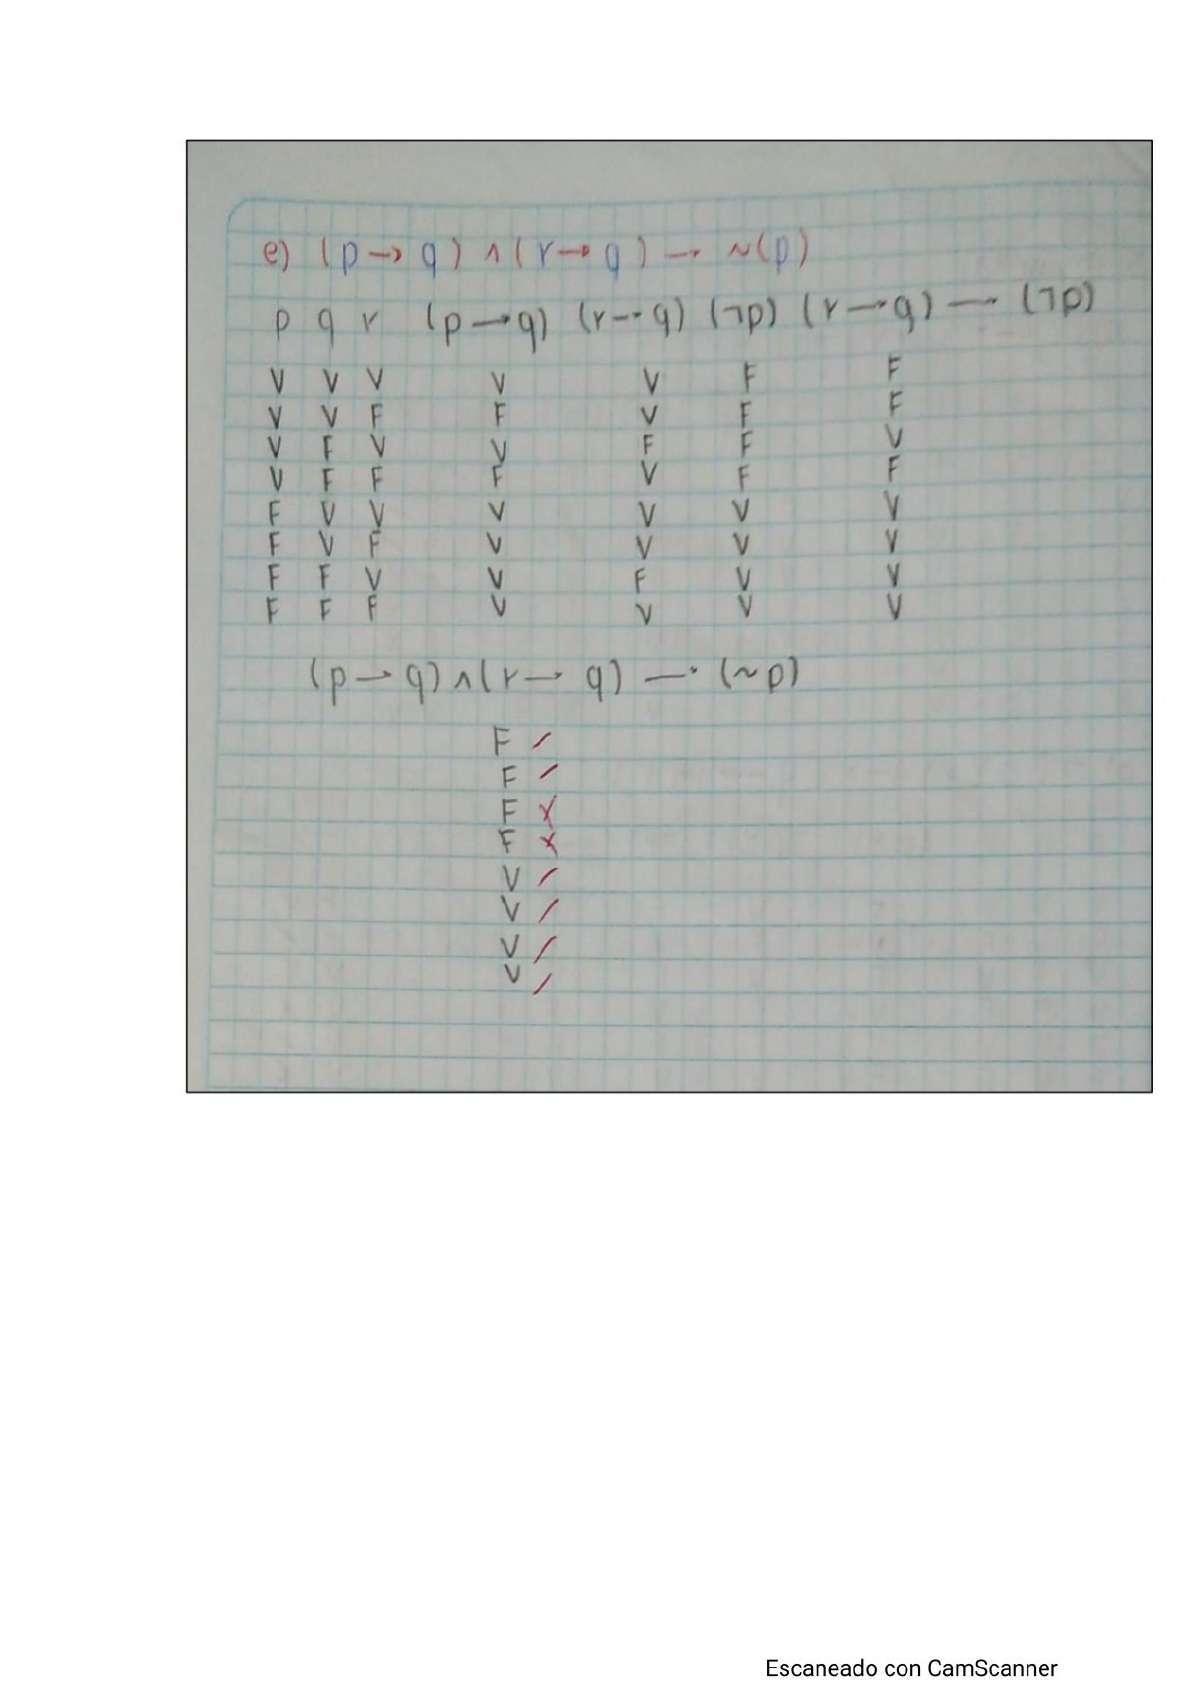 e) (p → q) ∧ (r → q) → ~(p)
p q r (p → q) (r → q) (¬p) (r → q) → (¬p)
V V V V V F F
V V F F V F F
V F V V F F V
V F F F V F F
F V V V V V V
F V F V V V V
F F V V F V V
F F F V V V V
(p → q) ∧ (r → q) → (~p)
F /
F /
F x
F x
V /
V /
V /
V /
Escaneado con CamScanner